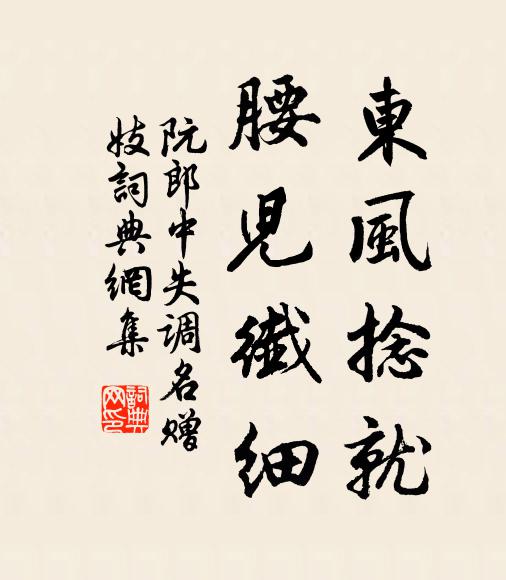 東風捻就
腰兒纖細
阮郎中失调名赠
妓詞典網集
詞典網印